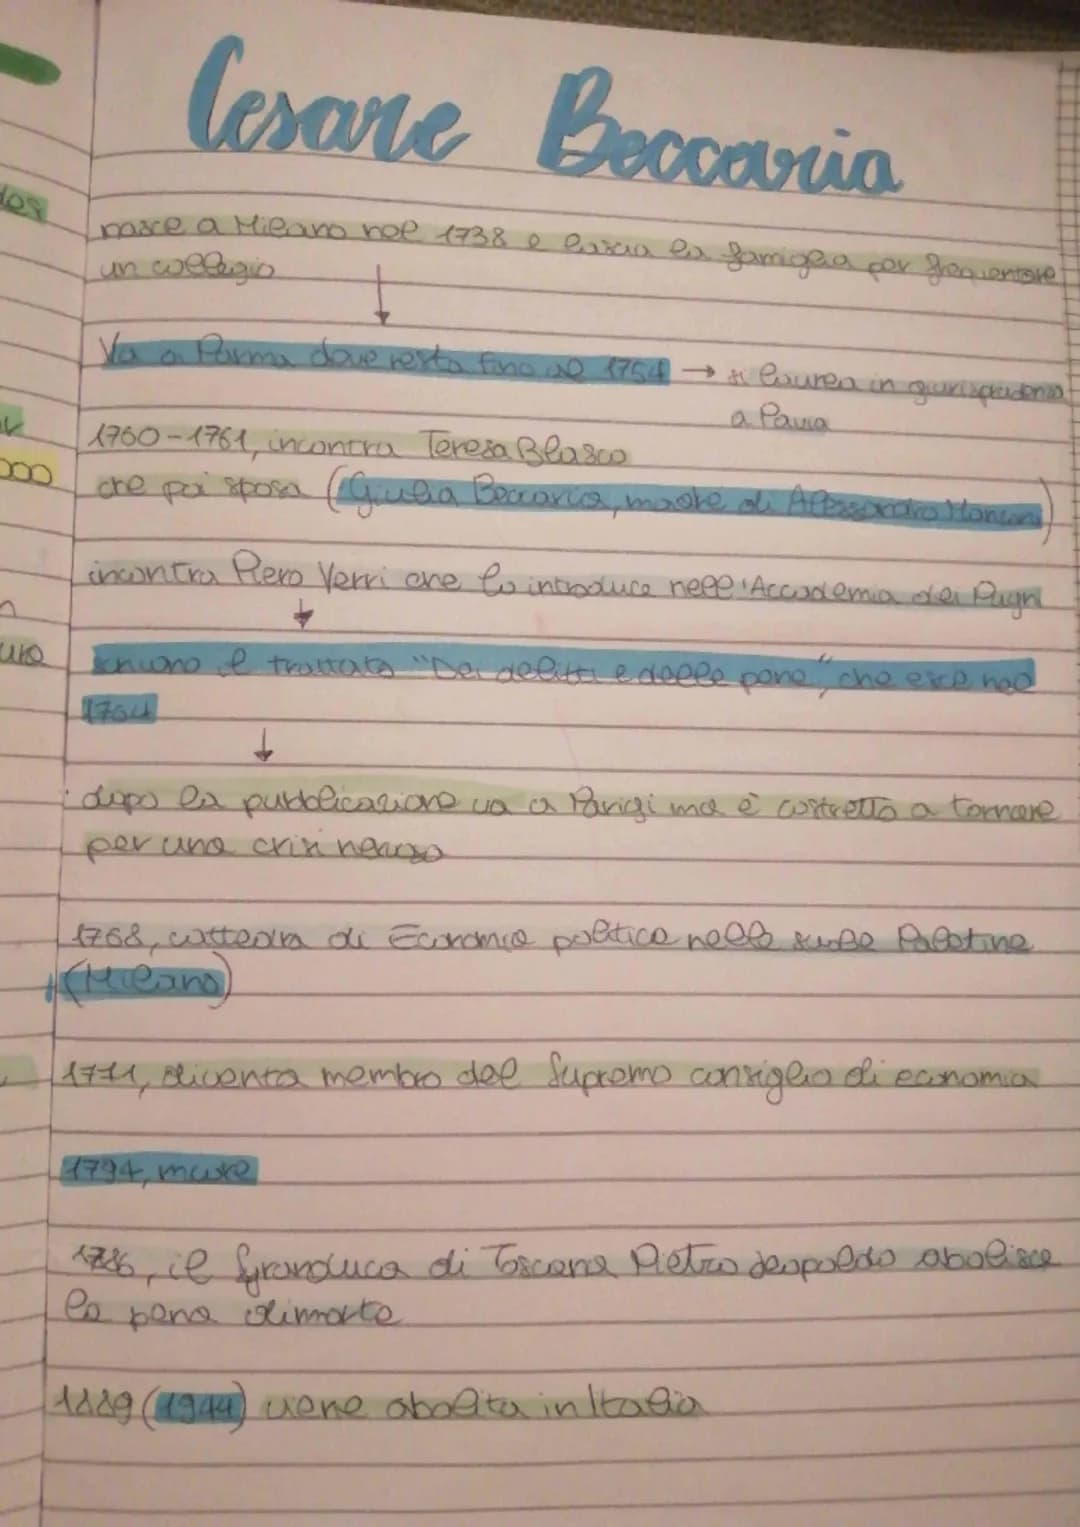 Cesare Beccaria
nasce a Milano nel 1738 e lascia la famiglia per frequentare
un collegio
↓
Va a Parma dove resta fino al 1754 → si laurea in giurisprudenza
a Pavia
1760-1761, incontra Teresa Blasco
che poi sposa (Giulia Beccaria, madre di Alessandro Manzoni)
incontra Piero Verri che lo introduce nell'Accademia dei Pugni
↓
scrivono il trattato "Dei delitti e delle pene", che esce nel
1764
↓
dopo la pubblicazione va a Parigi ma è costretto a tornare
per una crisi nervosa
1768, cattedra di Economia politica nelle scuole Palatine
(Milano)
1771, diventa membro del Supremo consiglio di economia
1794, muore
1786, il granduca di Toscana Pietro Leopoldo abolisce
la pena di morte
1889 (1944) viene abolita in Italia